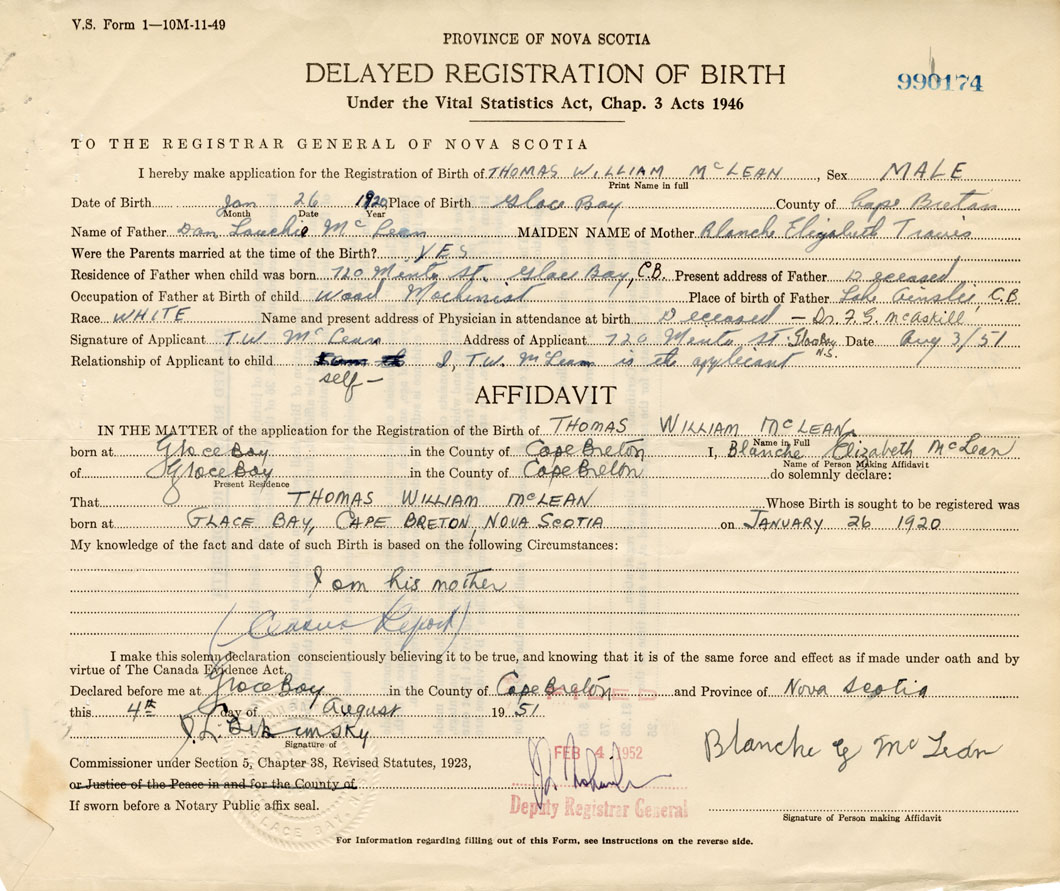 V.S. Form 1—10M-11-49
PROVINCE OF NOVA SCOTIA
DELAYED REGISTRATION OF BIRTH
990174
Under the Vital Statistics Act, Chap. 3 Acts 1946
TO THE REGISTRAR GENERAL OF NOVA SCOTIA
I hereby make application for the Registration of Birth of THOMAS WILLIAM McLEAN, Sex MALE
Print Name in full
Date of Birth Jan 26 1920 Place of Birth Glace Bay County of Cape Breton
Month Date Year
Name of Father Dan Lauchie McLean MAIDEN NAME of Mother Blanche Elizabeth Travis
Were the Parents married at the time of the Birth? YES
Residence of Father when child was born 720 St. Glace Bay, C.B. Present address of Father Deceased
Occupation of Father at Birth of child Wood Machinist Place of birth of Father Lake Ainslie, C.B.
Race WHITE Name and present address of Physician in attendance at birth Deceased — Dr. F. G. McAskill
Signature of Applicant T.W. McLean Address of Applicant 720 St. Glace Bay N.S. Date Aug 3/51
Relationship of Applicant to child I, T.W. McLean is the applicant
self —
AFFIDAVIT
IN THE MATTER of the application for the Registration of the Birth of THOMAS WILLIAM McLEAN
Name in Full
born at Glace Bay in the County of Cape Breton I, Blanche Elizabeth McLean
Name of Person Making Affidavit
of Glace Bay in the County of Cape Breton do solemnly declare:
Present Residence
That THOMAS WILLIAM McLEAN Whose Birth is sought to be registered was
born at GLACE BAY, CAPE BRETON, NOVA SCOTIA on JANUARY 26 1920
My knowledge of the fact and date of such Birth is based on the following Circumstances:
I am his mother
(Census Report)
I make this solemn declaration conscientiously believing it to be true, and knowing that it is of the same force and effect as if made under oath and by
virtue of The Canada Evidence Act.
Declared before me at Glace Bay in the County of Cape Breton and Province of Nova Scotia
this 4th day of August 1951
Signature of
Blanche E McLean
FEB 4 1952
Commissioner under Section 5, Chapter 38, Revised Statutes, 1923,
or Justice of the Peace in and for the County of
Deputy Registrar General
If sworn before a Notary Public affix seal.
Signature of Person making Affidavit
GLACE BAY
For Information regarding filling out of this Form, see instructions on the reverse side.